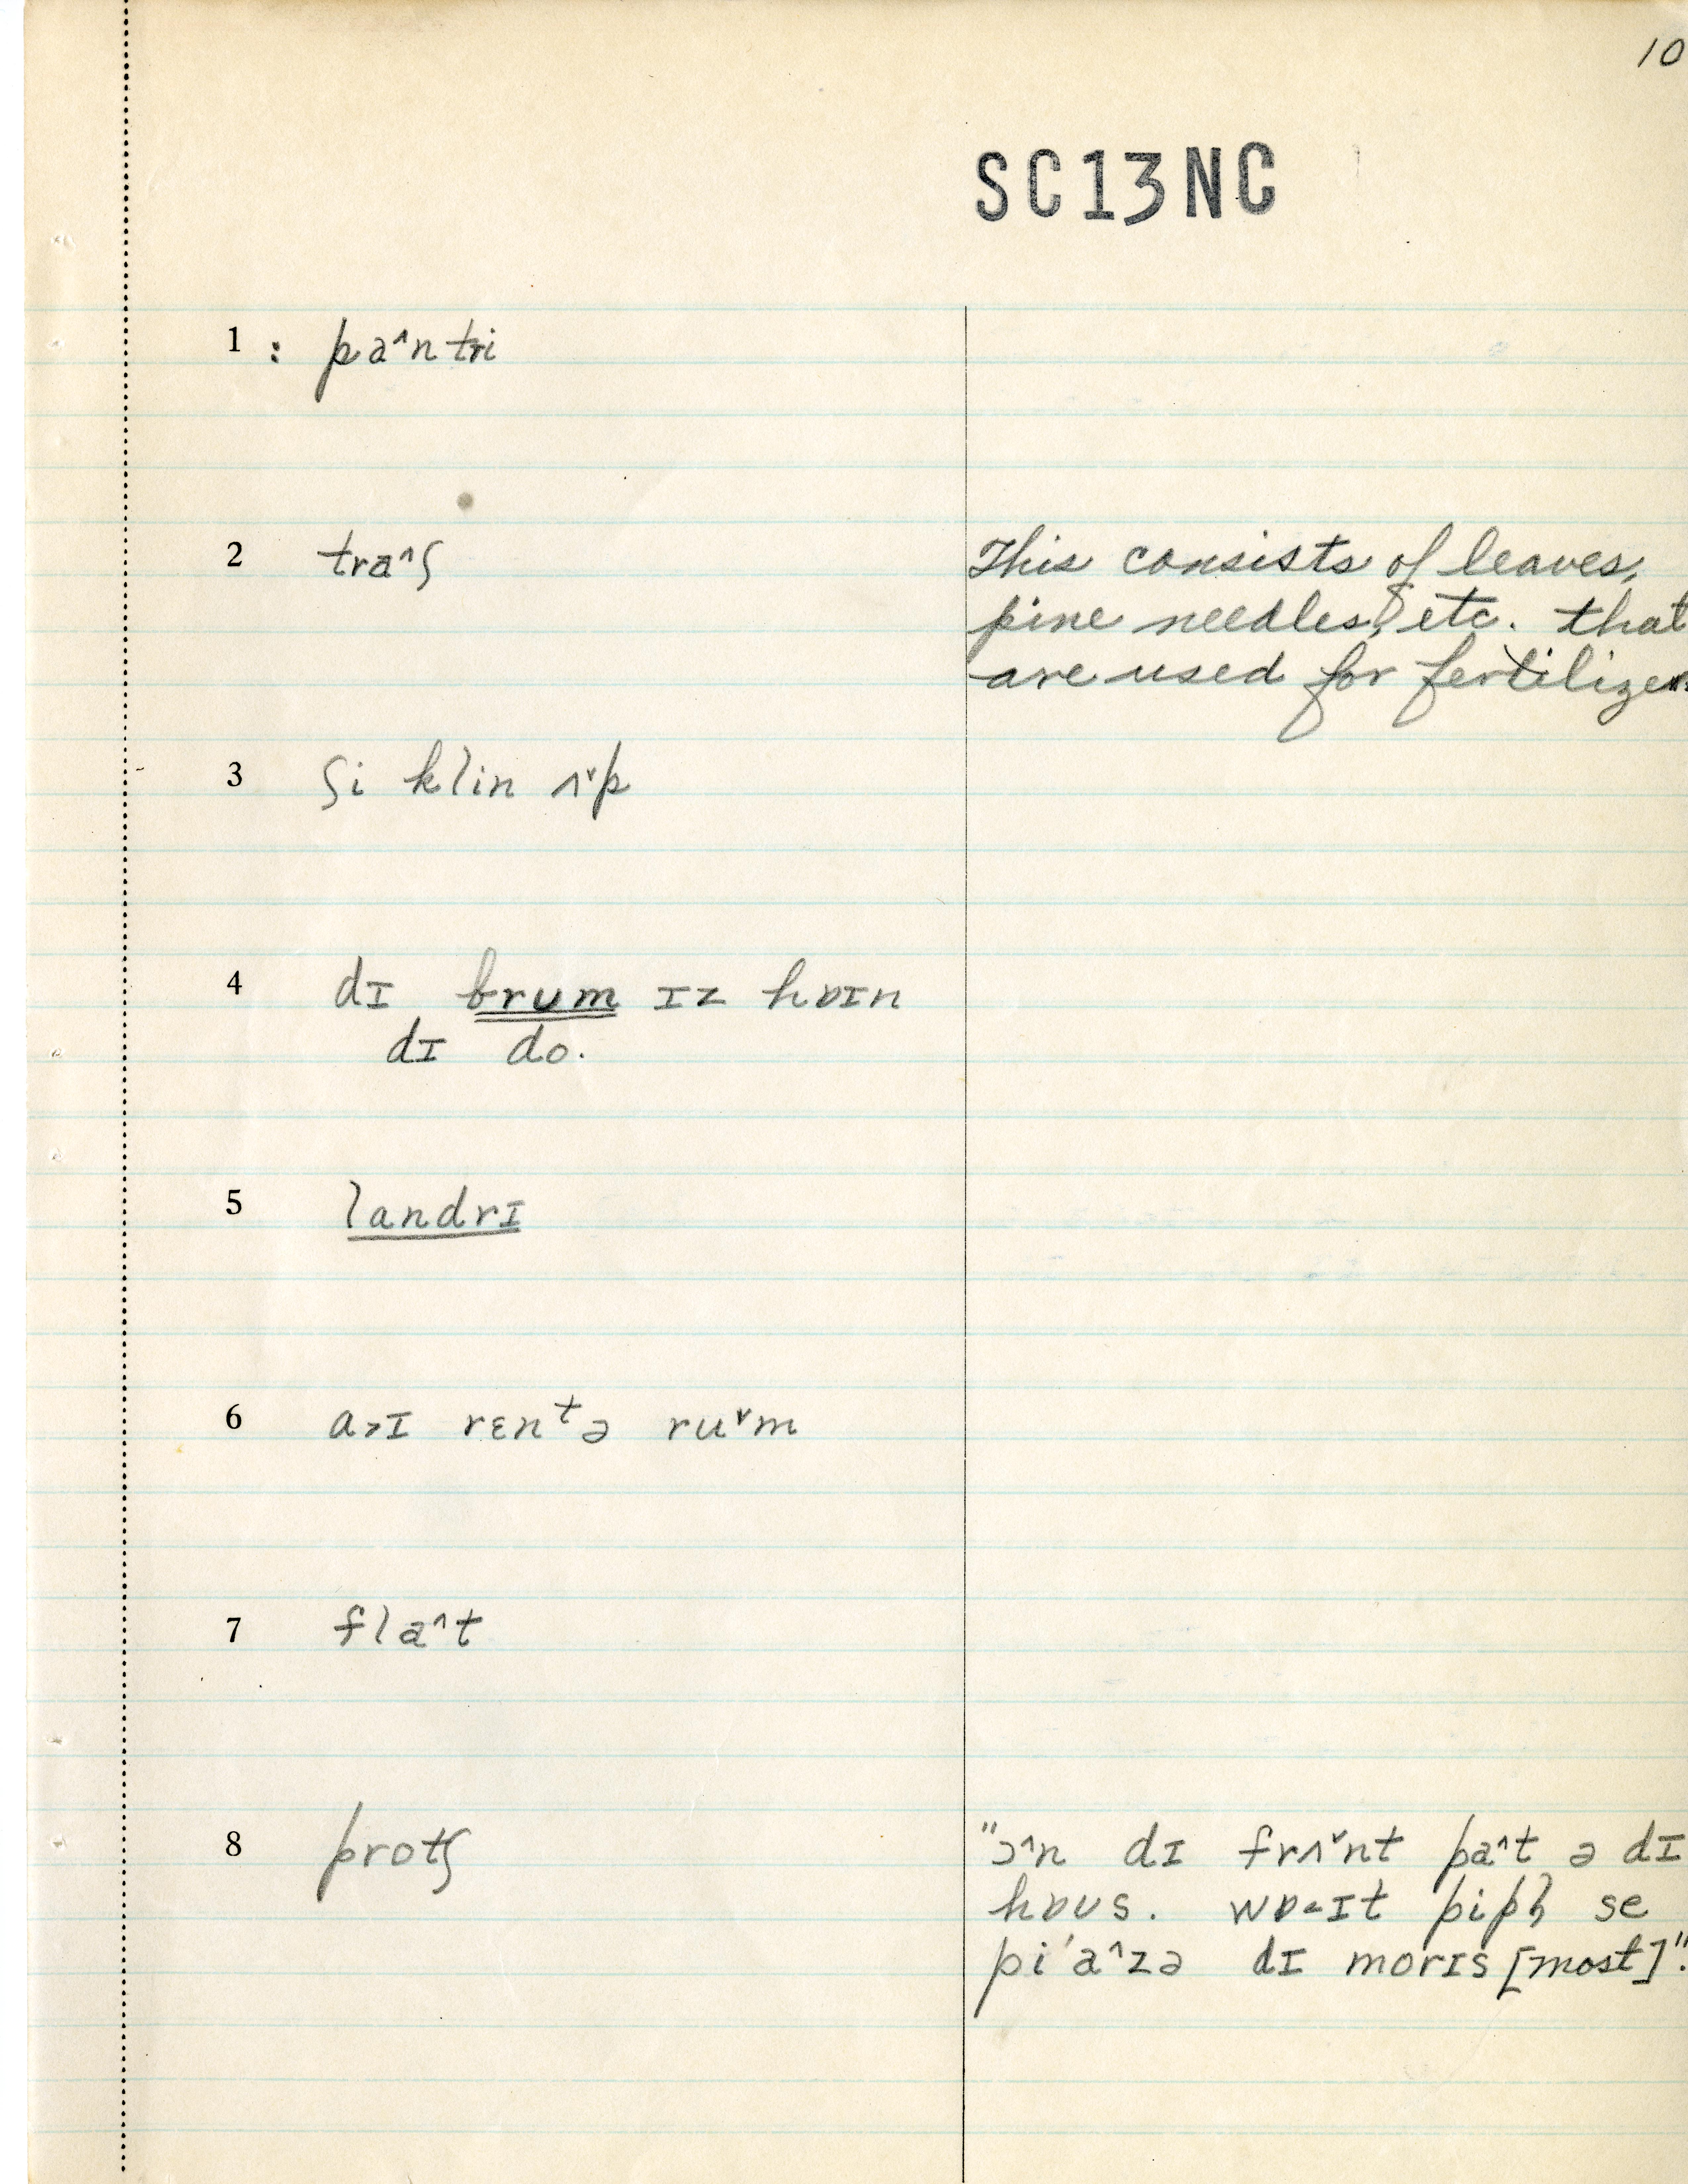 10
SC13NC
1 : pa^ntri
2 tra^ʃ
This consists of leaves,
pine needles, etc. that
are used for fertilizer.
3 ʃi klin ʌ˅p
4 dɪ brum ɪz hɒɪn
dɪ do.
5 landrɪ
6 a˃ɪ rɛnᵗə ru˅m
7 fla^t
8 protʃ
"ɔ^n dɪ frʌ˅nt pa^t ə dɪ
hɒʊs. wɒ˂ɪt pipl̩ se
pi'a^zə dɪ morɪs [most]".